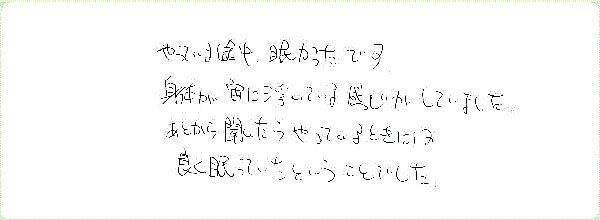 やっている途中、眠かったです。
身体が宙に浮いている感じがしていました。
あとから聞いたらやっているときには
良く眠っていたということでした。